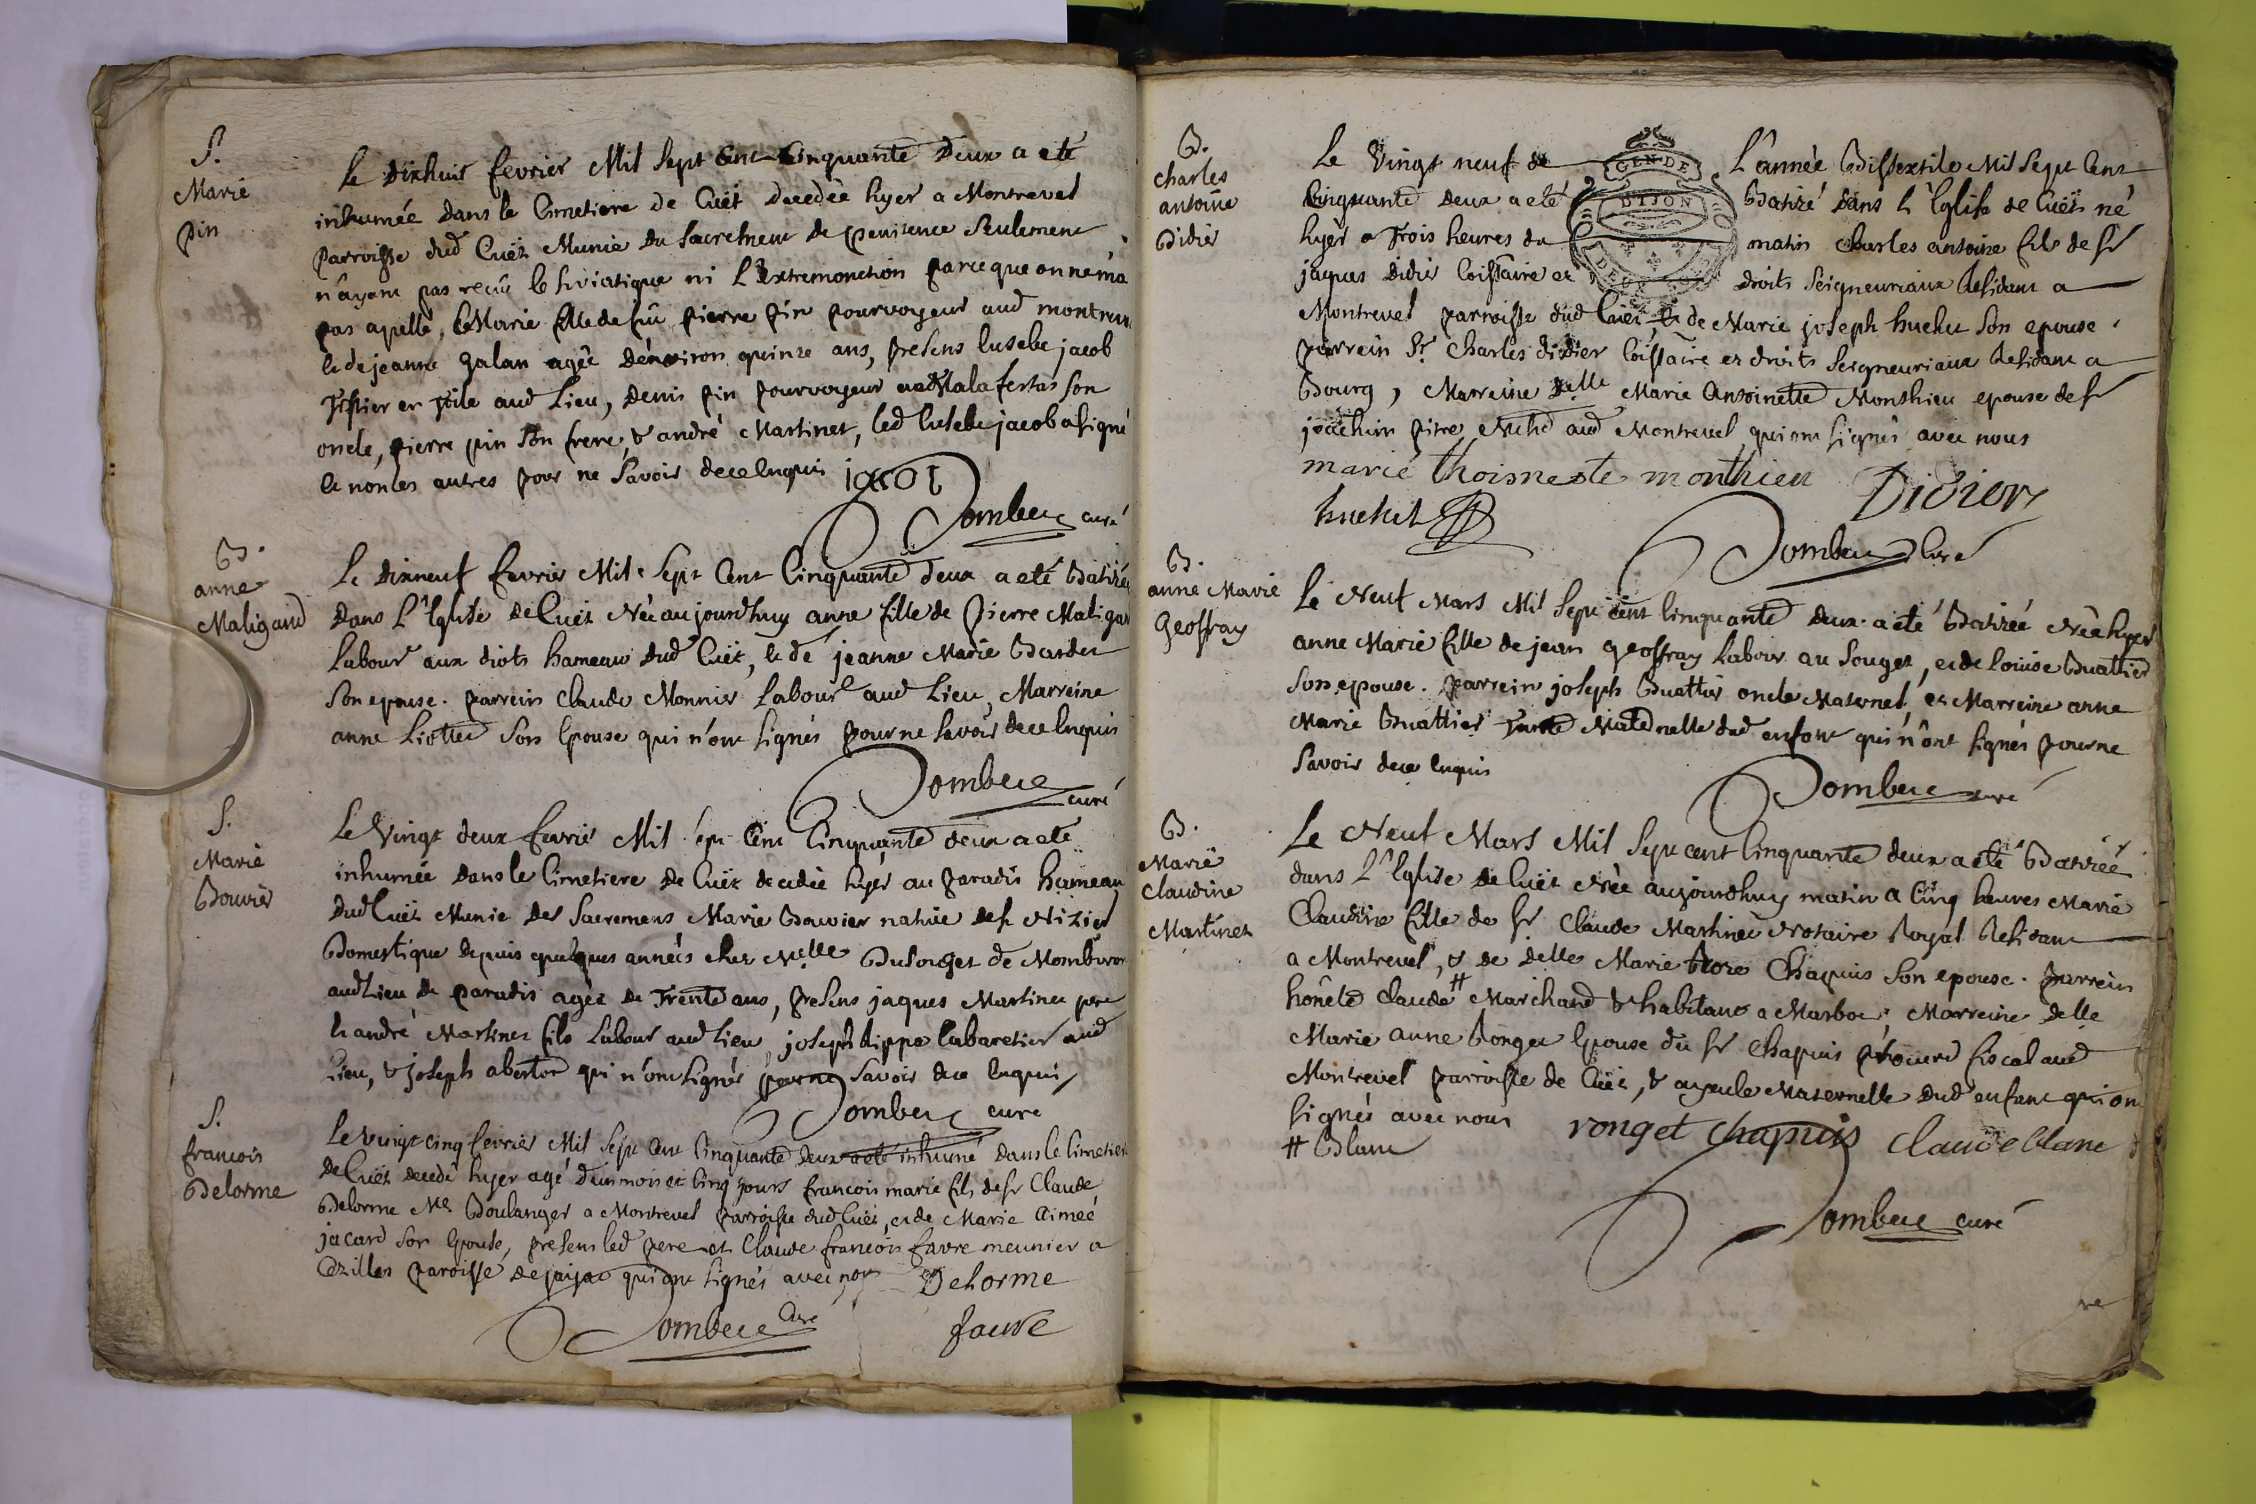 S.
Marie
pin
Le dixhuit fevrier Mil Sept Cent Cinquante Deux a eté
inhumée dans le Cimetiere de Cuët decedée hyer a Montrevel
parroisse dud Cuët Munie du Sacrement de penitence Seulement
n'ayant pas reçu le St viatique ni L'Extremonction parceque on ne m'a
pas apellé, Marie fille de fû pierre pin pourvoyeur aud montrev
& de jeanne galan agée d'environ quinze ans, presens Eusebe jacob
Tissier en toile aud Lieu, denis pin pourvoyeur son
oncle, pierre pin son frere, & andré Martinet, led Eusebe jacob a signé
& non les autres pour ne Savoir de ce Enquis jacob
Dombey curé
B.
anne
Maligaud
Le dixneuf fevrier Mil Sept Cent Cinquante deux a eté Batizée
Dans L'Eglise de Cuët Née aujourdhuy anne fille de Pierre Maligau
Labour aux diots hameau dud Cuët, & de jeanne Marie Bardet
Son epouse. parrein Claude Monnier Labour aud Lieu, Marreine
anne Son Epouse qui n'ont signés pour ne Savoir de ce Enquis
Dombey curé
S.
Marie
Bouvier
Le Vingt deux fevrier Mil Sept Cent Cinquante deux a eté
inhumée Dans le Cimetiere de Cuët decedée hyer au paradis hameau
dud Cuët Munie des Sacremens Marie Bouvier native de St Nizier
Domestique depuis quelques années chez Melle Dusouget de
aud Lieu de paradis agée de Trente ans, presens jaques Martinet pere
& andré Martinet fils Labour aud Lieu, joseph Cabaretier aud
Lieu, & joseph qui n'ont signés pour ne Savoir de ce Enquis
Dombey curé
S.
francois
Delorme
Le vingt cinq fevrier Mil Sept Cent Cinquante deux a eté inhumé Dans le Cimetiere
de Cuët decedé hyer agé d'un mois et Cinq jours francois marie fils de Sr Claude
Delorme Me Boulanger a Montrevel parroisse dud Cuët, et de Marie Aimée
jacard son Epouse, presens led pere et Claude francois favre meunier a
Cezilles paroisse de jajat qui ont signés avec nous Delorme
Dombey Curé favre
B.
charles
antoine
Didier
Le Vingt neuf de L'année Bissextile Mil Sept Cent
Cinquante deux a eté Batizé dans L'Eglise de Cuët né
hyer a Trois heures du matin Charles antoine fils de Sr
jaques Didier Coissaire es droits Seigneuriaux Residant a
Montrevel parroisse dud Cuët & de Marie joseph huchet Son epouse.
parrein Sr. Charles didier Coissaire es droits Seigneuriaux Residant a
Bourg, Marreine Delle Marie Antoinette Monthieu epouse de Sr
joachim pitre aud Montrevel qui ont signés avec nous
marie thoinette monthieu Didier
huchet
Dombey Curé
GEN DE
DIJON
B.
anne Marie
Geoffray
Le Neuf Mars Mil Sept cent Cinquante Deux a eté Batizée Née hyer
anne Marie fille de jean geoffray Labour au Souget, et de Loüise Buattier
son epouse. parrein joseph Buattier oncle Maternel, et Marreine anne
Marie Buattier Tante Maternelle dud enfant qui n'ont signés pour ne
Savoir de ce Enquis
Dombey curé
B.
Marie
Claudine
Martinet
Le Neuf Mars Mil Sept cent Cinquante deux a eté Batizée
dans L'Eglise de Cuët Née aujourdhuy matin a Cinq heures Marie
Claudine fille de Sr Claude Martinet Notaire Royal Residant
a Montrevel, & de delle Marie Chapuis son epouse. parrein
honête Claude # Marchand & habitant a Marboz; Marreine delle
Marie anne Ronget Epouse du Sr Chapuis procur fiscal aud
Montrevel parroisse de Cuët, & ayeule Maternelle dud enfant qui ont
signés avec nous ronget chapuis Claude blanc
# Blanc
Dombey curé